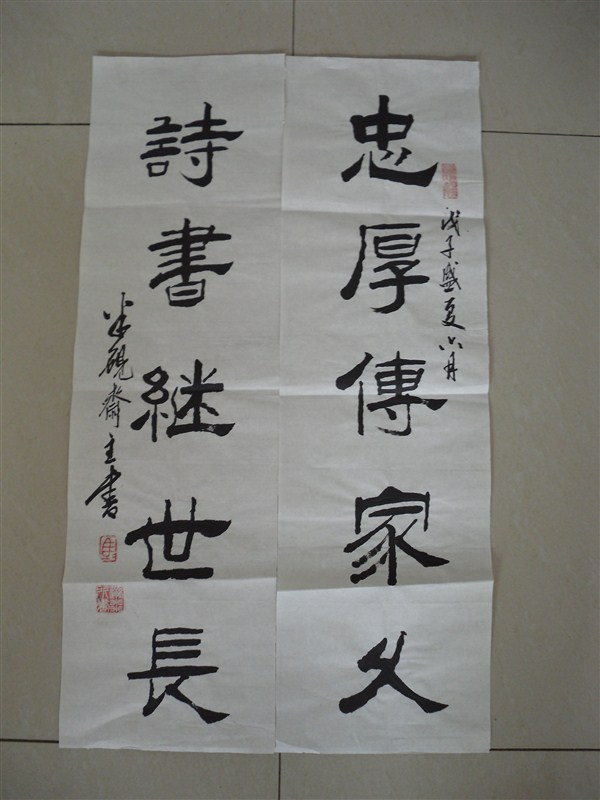 忠厚傳家久
戊子盛夏六月
詩書継世長
半砚齋主书